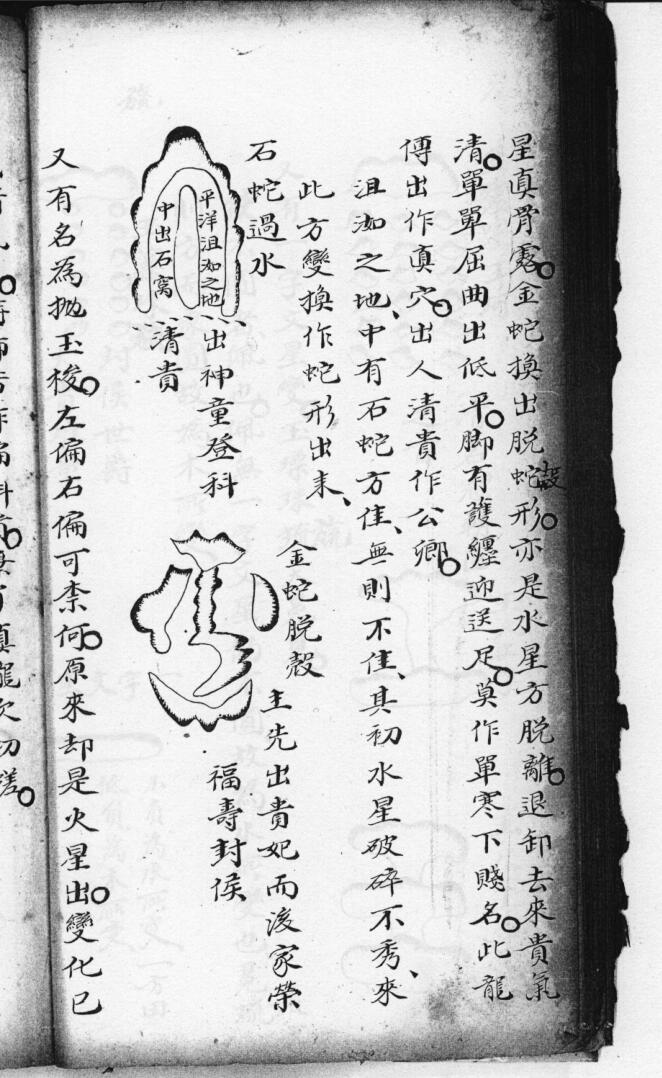 星真骨露金蛇換出脱蛇殼形亦是水星方脫離退卸去來貴氣
清單單屈曲出低平脚有護纏迎送足莫作單寒下賤名此龍
傳出作真穴出人清貴作公卿
沮洳之地中有石蛇方佳無則不佳其初水星破碎不秀來
此方變換作蛇形出來
石蛇過水
平洋沮洳之地
中出石窩
出神童登科
清貴
金蛇脱殼
主先出貴妃而後家榮
福壽封侯
又有名為拋玉梭左偏右偏可柰何原來却是火星出變化已